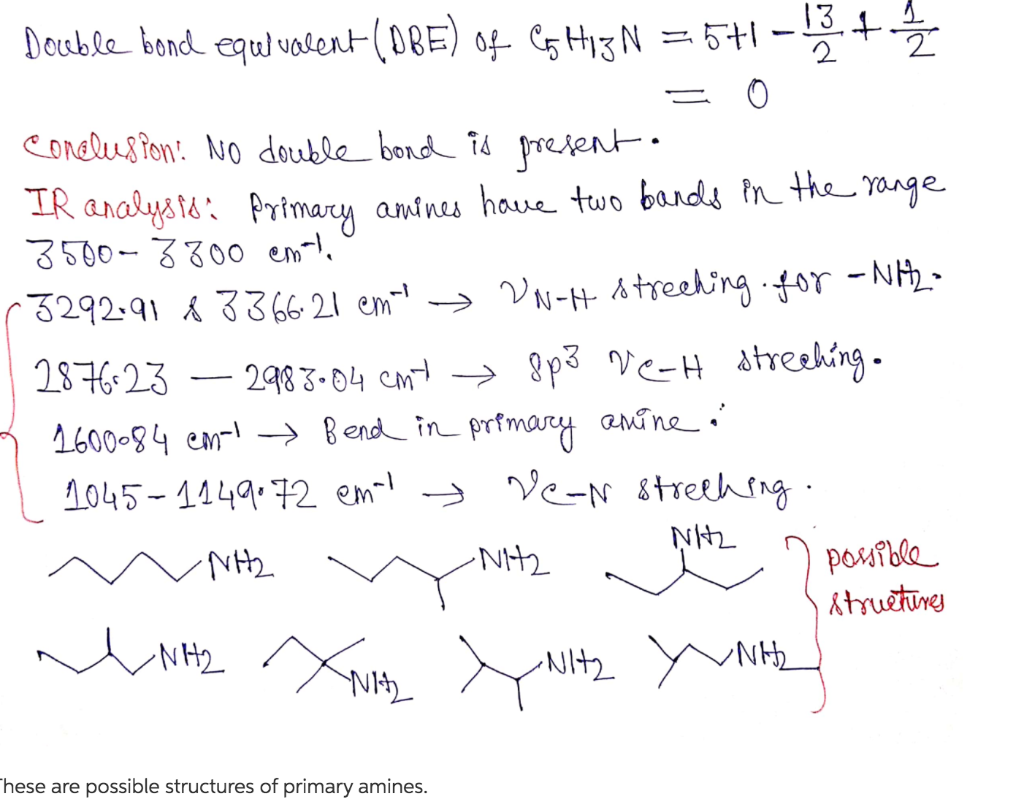 Double bond equivalent (DBE) of C5H13N = 5+1 - 13/2 + 1/2
= 0
Conclusion: No double bond is present.
IR analysis: Primary amines have two bands in the range
3500 - 3300 cm-1.
3292.91 & 3366.21 cm-1 → νN-H streching for -NH2.
2876.23 — 2983.04 cm-1 → sp3 νC-H streching.
1600.84 cm-1 → Bend in primary amine.
1045 - 1149.72 cm-1 → νC-N streching.
NH2 NH2 NH2 possible
structures
NH2 NH2 NH2 NH2
These are possible structures of primary amines.